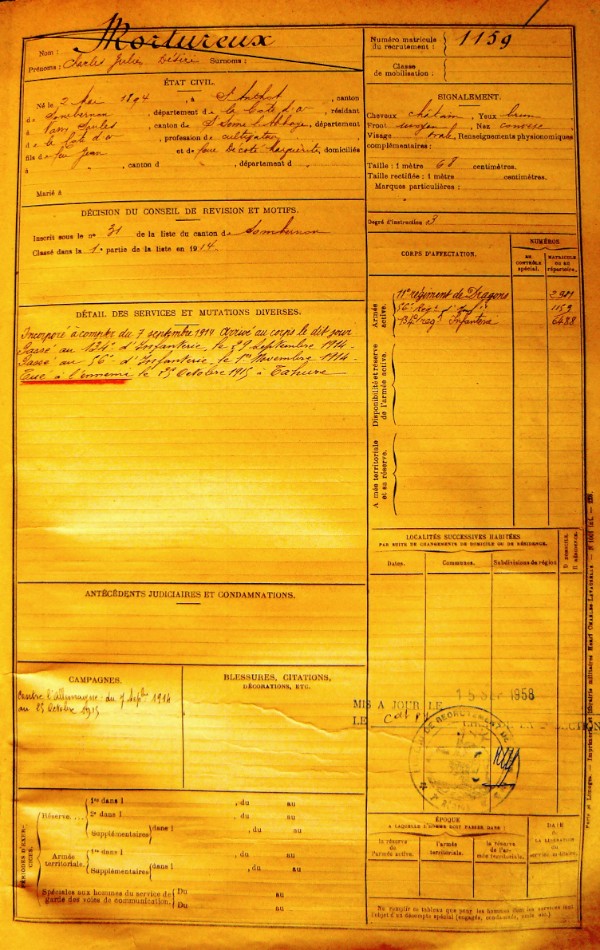 Nom : Mortureux
Prénoms : Jules Désiré Surnoms :
Numéro matricule du recrutement : 1159
Classe de mobilisation :
ÉTAT CIVIL.
Né le 2 Mai 1894, à canton
de Sombernon, département de la Côte d'or, résidant
à, canton de, département
de la Côte d'or, profession de cultivateur
fils de feu Jean et de, domiciliés
à, canton d, département d
Marié à
SIGNALEMENT.
Cheveux châtain Yeux
Front moyen Nez
Visage, Renseignements physionomiques
complémentaires :
Taille : 1 mètre 68 centimètres.
Taille rectifiée : 1 mètre centimètres.
Marques particulières :
DÉCISION DU CONSEIL DE REVISION ET MOTIFS.
Inscrit sous le n° 31 de la liste du canton de Sombernon
Classé dans la 1e partie de la liste en 1914.
Degré d'instruction : 3
CORPS D'AFFECTATION.
NUMÉROS.
AU CONTRÔLE spécial.
MATRICULE OU AU répertoire.
Armée active.
11e régiment de Dragons
56e Rég. d'Inf.
Infanterie
Disponibilité et réserve de l'armée active.
Armée territoriale et sa réserve.
DÉTAIL DES SERVICES ET MUTATIONS DIVERSES.
Incorporé à compter du 7 septembre 1914 Arrivé au corps le dit jour
Passé au 134e d'Infanterie, le 29 Septembre 1914.
Passé au 56e d'Infanterie, le 1er Novembre 1914.
Tué à l'ennemi le 25 Octobre 1915 à Tahure
LOCALITÉS SUCCESSIVES HABITÉES
PAR SUITE DE CHANGEMENTS DE DOMICILE OU DE RÉSIDENCE.
Dates.
Communes.
Subdivisions de région
D. DOMICILE.
R. RÉSIDENCE.
ANTÉCÉDENTS JUDICIAIRES ET CONDAMNATIONS.
CAMPAGNES.
Contre l'Allemagne du 7 Sept. 1914
au 25 Octobre 1915
BLESSURES, CITATIONS,
DÉCORATIONS, ETC.
15 SEP 1958
MIS A JOUR LE
LE
PÉRIODES D'EXERCICES.
Réserve....
1re dans l, du au
2e dans l, du au
Supplémentaires dans l, du au
Armée territoriale.
1re dans l, du au
Supplémentaires dans l, du au
Spéciales aux hommes du service de garde des voies de communication.
Du au
Du au
ÉPOQUE
A LAQUELLE L'HOMME DOIT PASSER DANS :
la réserve de l'armée active.
l'armée territoriale.
la réserve de l'armée territoriale.
DATE DE LA LIBÉRATION DU SERVICE MILITAIRE.
Paris et Limoges. — Imprimerie et librairie militaires Henri CHARLES-LAVAUZELLE